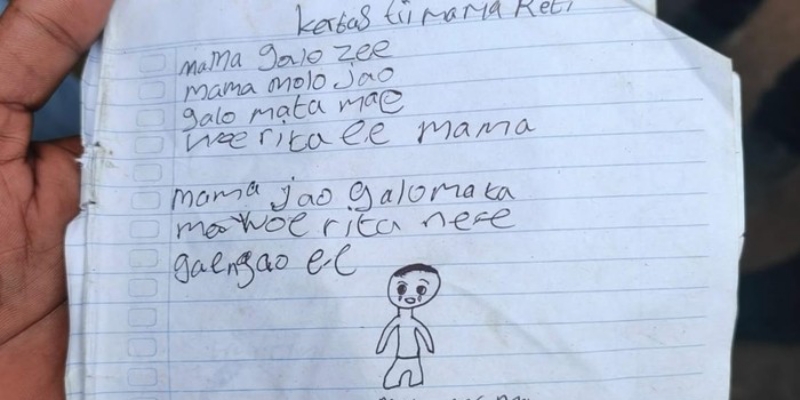 kertas tii mama Reti
mama galo zee
mama molo jao
galo mata mae
woe rita ee mama
mama jao galo mata
mae woe rita nese
gaengao ee